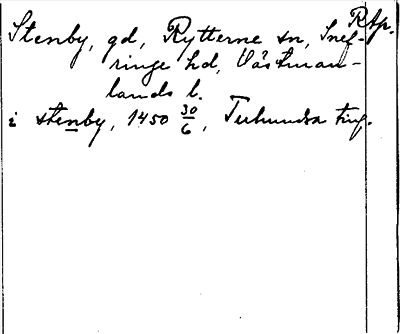 Rtp.
Stenby, gd, Rytterne sn, Snef-
ringe hd, Västman-
lands l.
i stenby, 1450 30/6, Tuhundra ting.